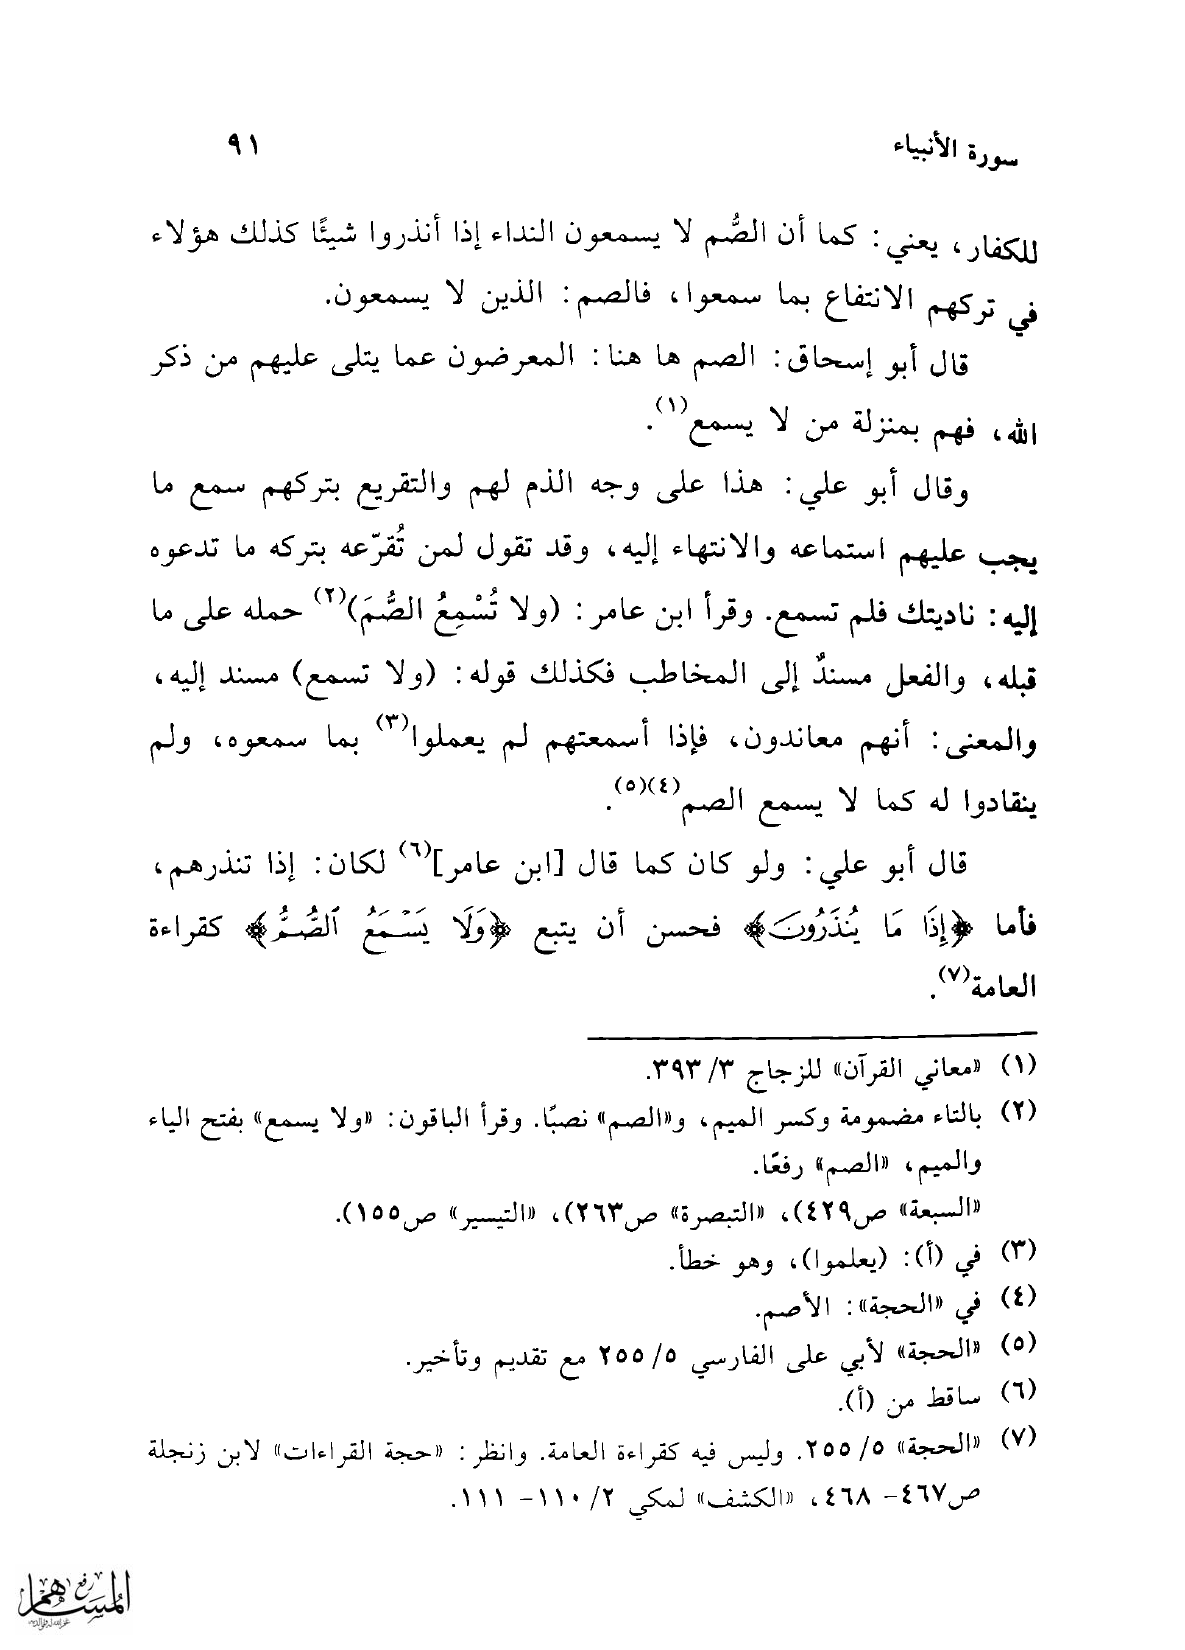 سورة الأنبياء
٩١
للكفار، يعني: كما أن الصُّم لا يسمعون النداء إذا أنذروا شيئًا كذلك هؤلاء
في تركهم الانتفاع بما سمعوا، فالصم: الذين لا يسمعون.
قال أبو إسحاق: الصم ها هنا: المعرضون عما يتلى عليهم من ذكر
الله، فهم بمنزلة من لا يسمع(١).
وقال أبو علي: هذا على وجه الذم لهم والتقريع بتركهم سمع ما
يجب عليهم استماعه والانتهاء إليه، وقد تقول لمن تُقرّعه بتركه ما تدعوه
إليه: ناديتك فلم تسمع. وقرأ ابن عامر: (ولا تُسْمِعُ الصُّمَ)(٢) حمله على ما
قبله، والفعل مسندٌ إلى المخاطب فكذلك قوله: (ولا تسمع) مسند إليه،
والمعنى: أنهم معاندون، فإذا أسمعتهم لم يعملوا(٣) بما سمعوه، ولم
ينقادوا له كما لا يسمع الصم(٤)(٥).
قال أبو علي: ولو كان كما قال [ابن عامر](٦) لكان: إذا تنذرهم،
فأما ﴿إِذَا مَا يُنذَرُونَ﴾ فحسن أن يتبع ﴿وَلَا يَسْمَعُ ٱلصُّمُّ﴾ كقراءة
العامة(٧).
(١) «معاني القرآن» للزجاج ٣/ ٣٩٣.
(٢) بالتاء مضمومة وكسر الميم، و«الصم» نصبًا. وقرأ الباقون: «ولا يسمع» بفتح الياء
والميم، «الصم» رفعًا.
«السبعة» ص٤٢٩)، «التبصرة» ص٢٦٣)، «التيسير» ص١٥٥).
(٣) في (أ): (يعلموا)، وهو خطأ.
(٤) في «الحجة»: الأصم.
(٥) «الحجة» لأبي على الفارسي ٥/ ٢٥٥ مع تقديم وتأخير.
(٦) ساقط من (أ).
(٧) «الحجة» ٥/ ٢٥٥. وليس فيه كقراءة العامة. وانظر: «حجة القراءات» لابن زنجلة
ص٤٦٧- ٤٦٨، «الكشف» لمكي ٢/ ١١٠- ١١١.